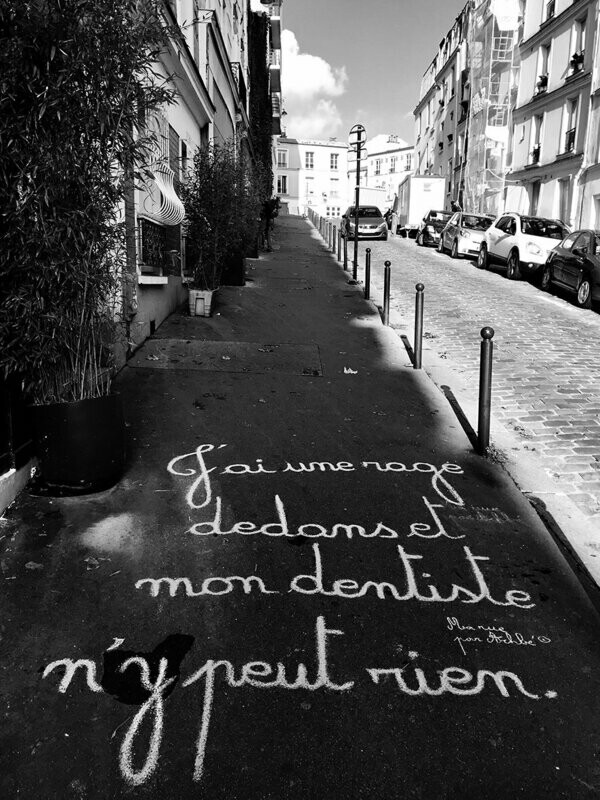 J'ai une rage
dedans et
mon dentiste
n'y peut rien.
Ma rue
par Achbé ©